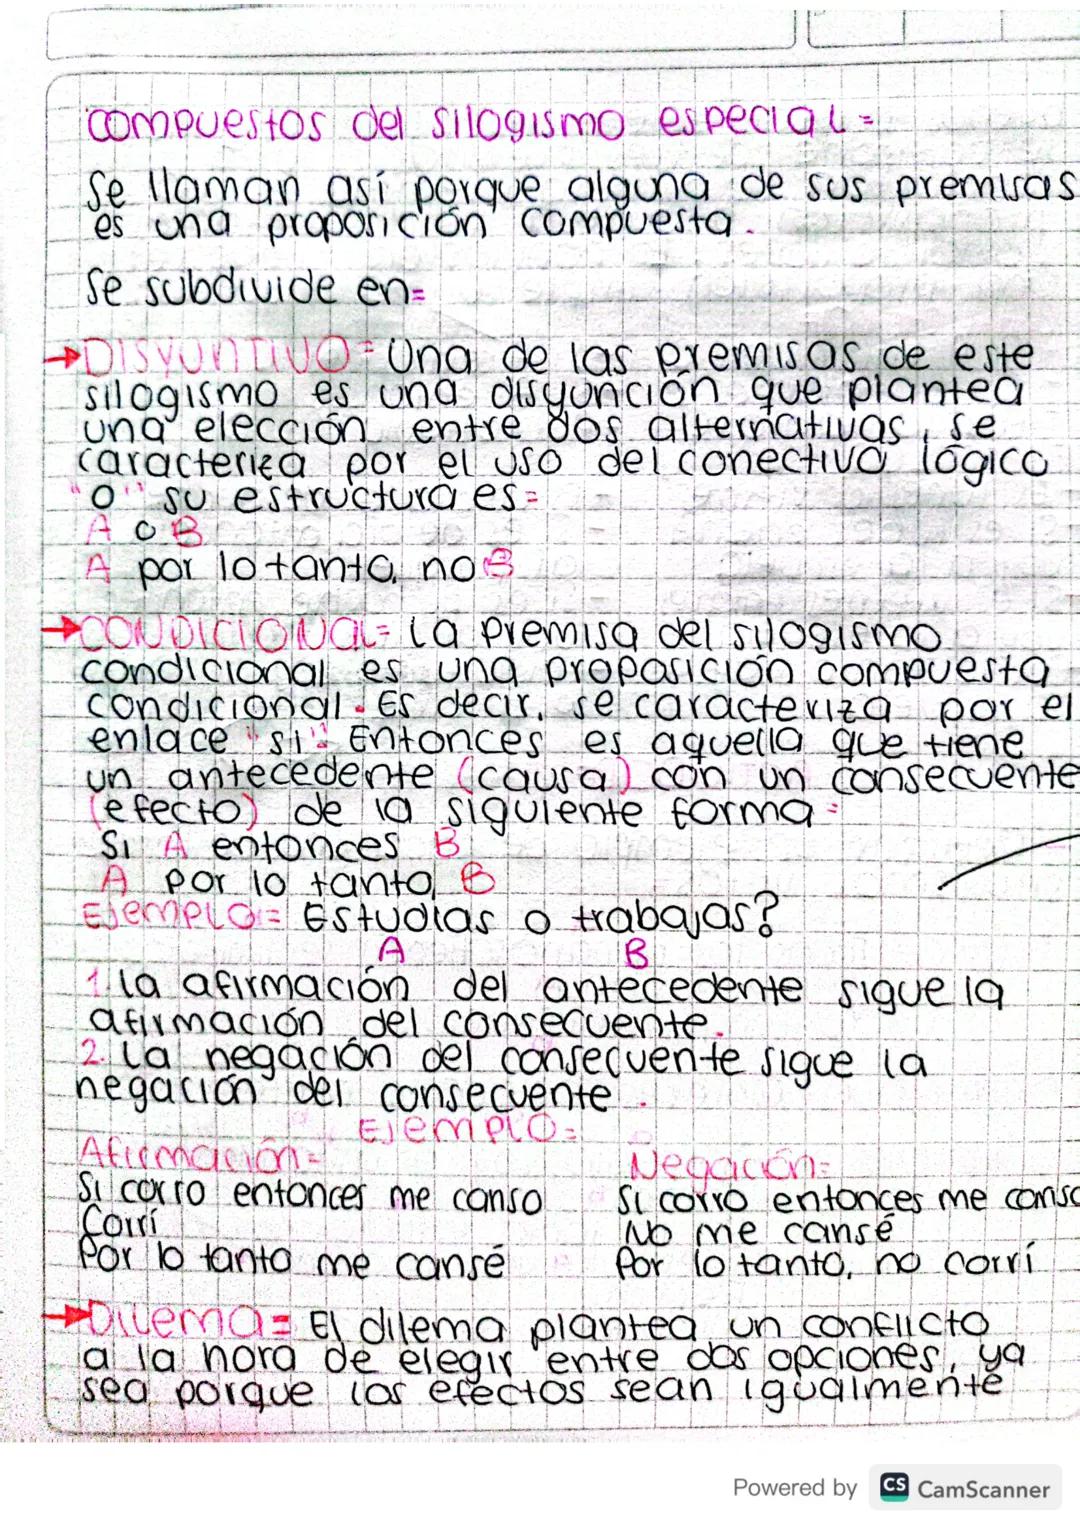 compuestos del silogismo especial=
Se llaman así porque alguna de sus premisas
es una proposición compuesta.
Se subdivide en=
→DISYUNTIVO= Una de las premisas de este
silogismo es una disyunción que plantea
una elección entre dos alternativas, se
caracteriza por el uso del conectivo lógico
"o" su estructura es=
A o B
A por lo tanto, no B
→CONDICIONAL= la premisa del silogismo
condicional es una proposición compuesta
condicional. Es decir, se caracteriza por el
enlace "si". Entonces es aquella que tiene
un antecedente (causa) con un consecuente
(efecto) de la siguiente forma=
Si A entonces B
A por lo tanto, B
Ejemplo= Estudias o trabajas?
A B
1. la afirmación del antecedente sigue la
afirmación del consecuente.
2. la negación del consecuente sigue la
negación del consecuente.
Ejemplo=
Afirmación= Negación=
Si corro entonces me canso Si corro entonces me canso
Corrí No me cansé
Por lo tanto me cansé Por lo tanto, no corrí
→Dilema= El dilema plantea un conflicto
a la hora de elegir entre dos opciones, ya
sea porque los efectos sean igualmente
Powered by CS CamScanner